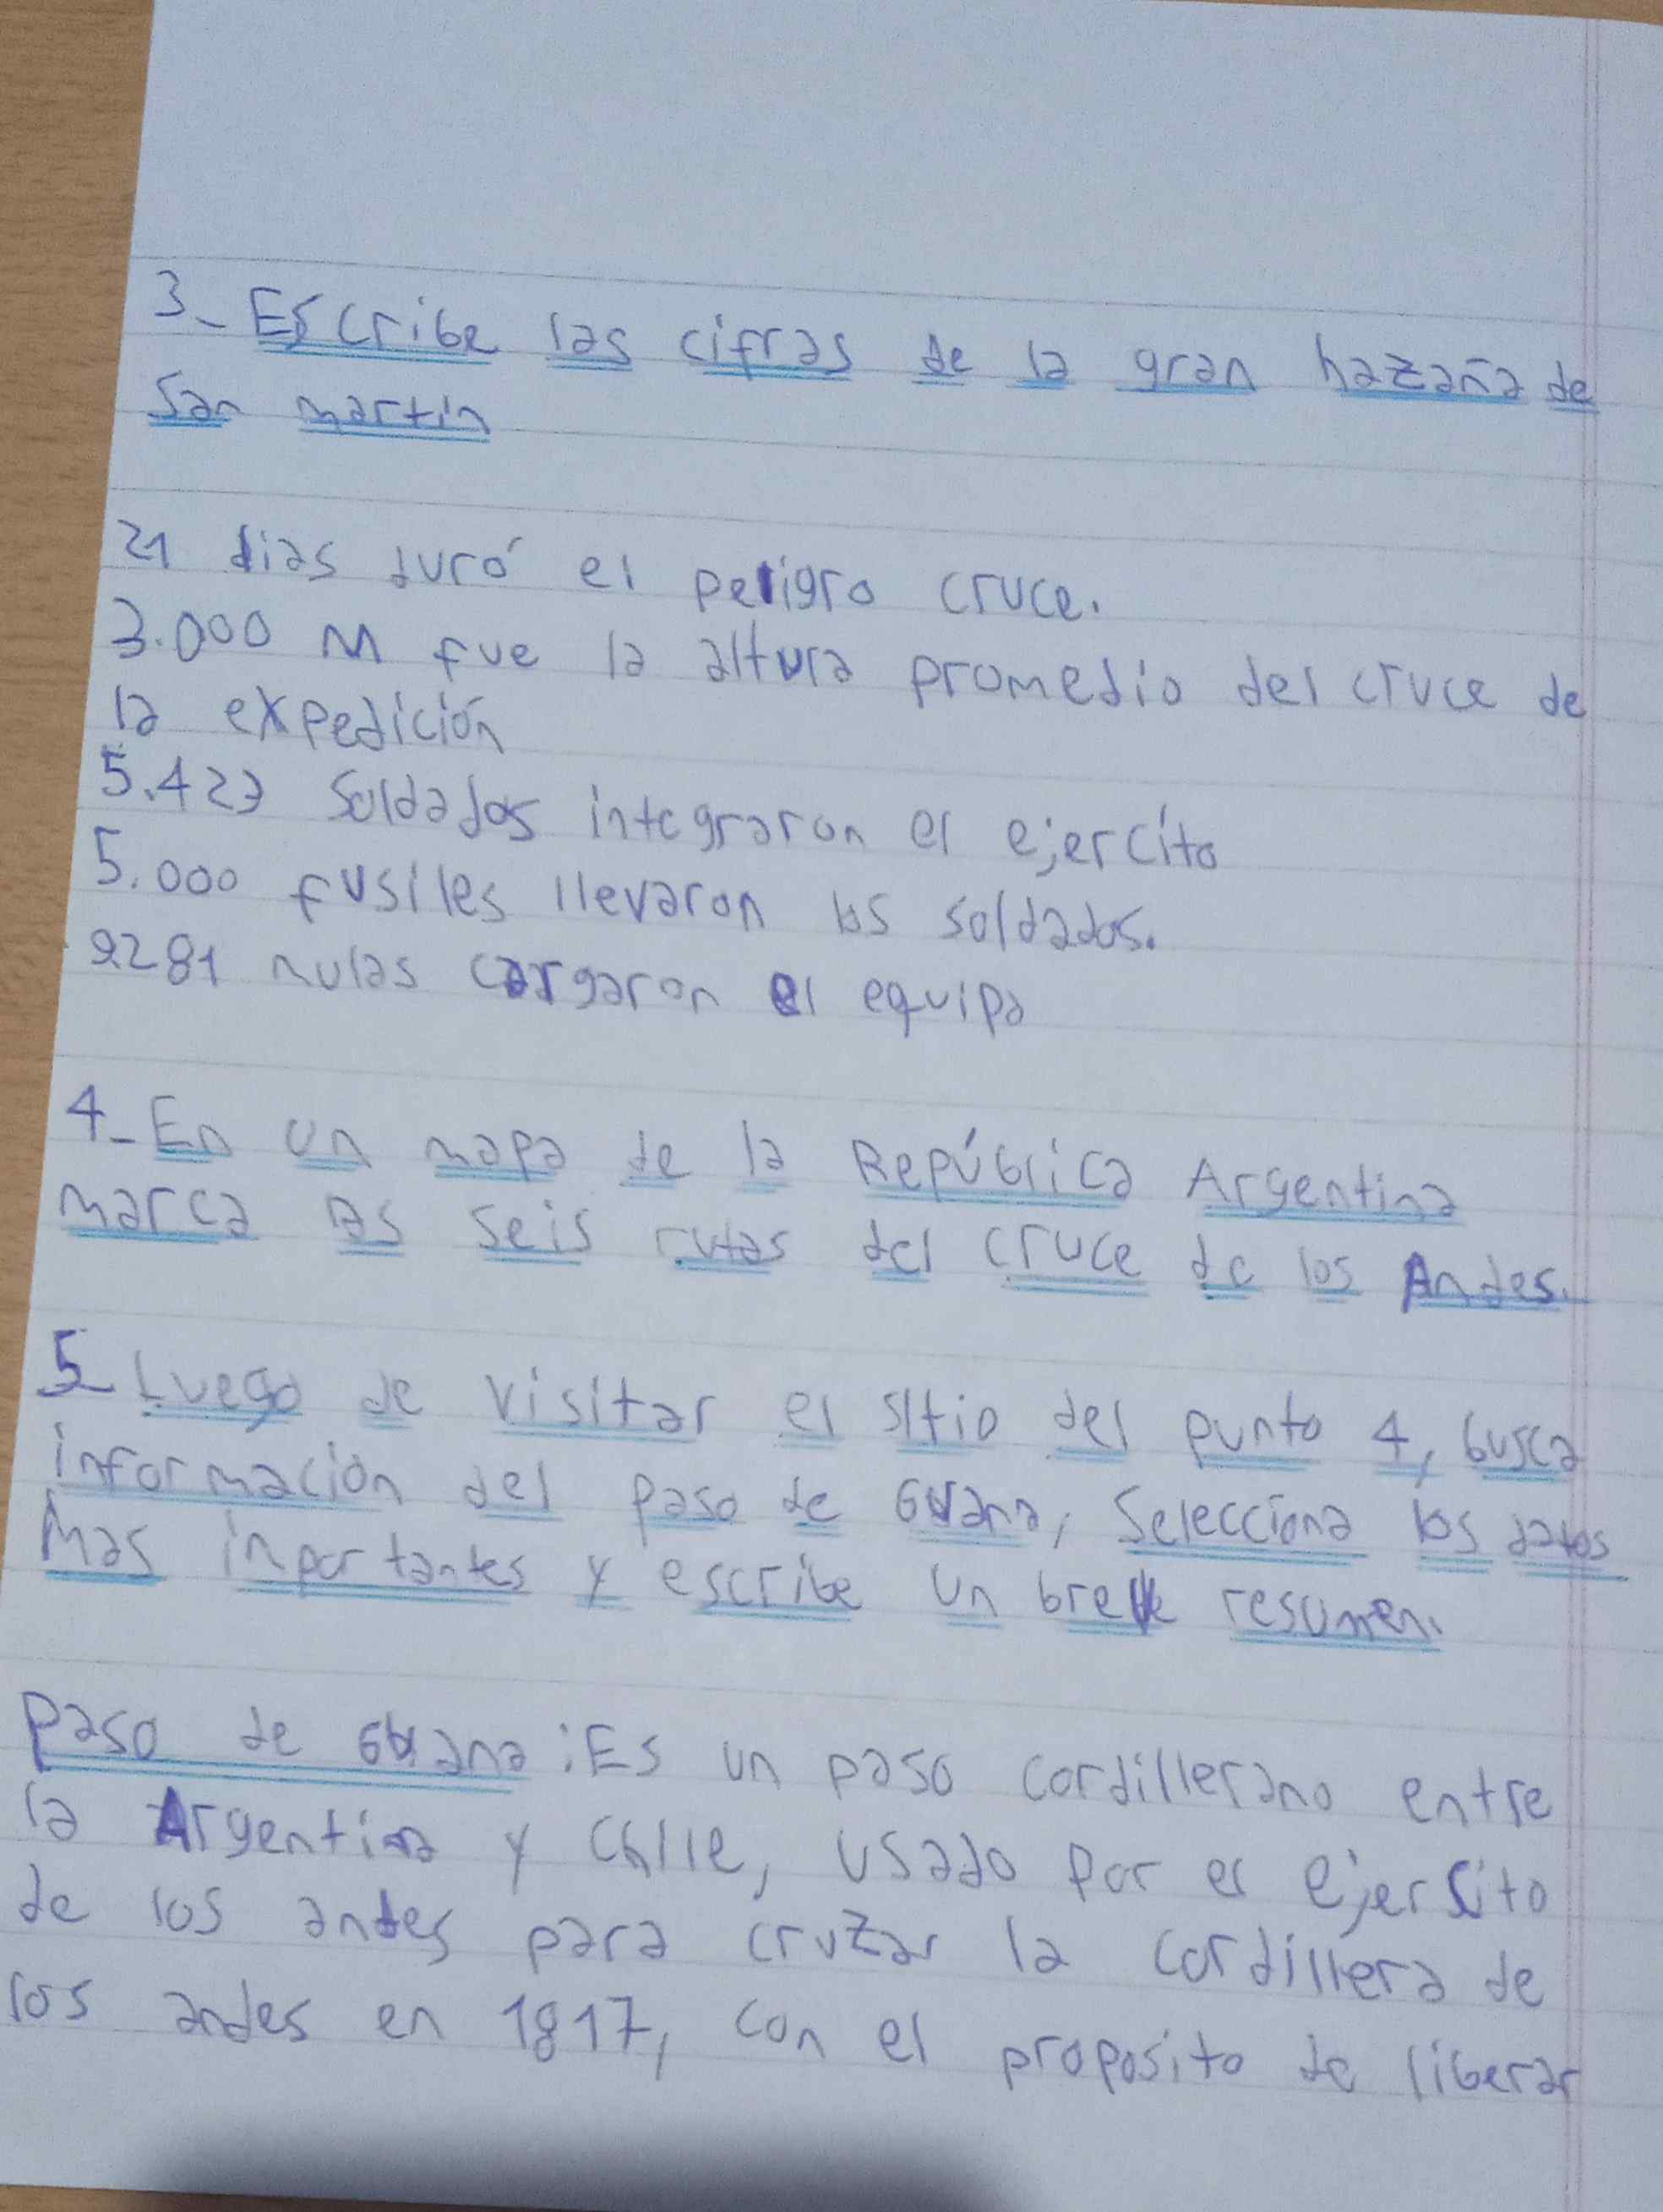 3_ Escribe las cifras de la gran hazaña de
San martín
21 dias duró el peligro cruce.
3.000 M fue la altura promedio del cruce de
la expedición
5.423 soldados integraron el ejercito
5.000 fusiles llevaron los soldados.
9281 mulas cargaron el equipo
4_ En un mapa de la República Argentina
marca las seis rutas del cruce de los Andes.
5_ Luego de visitar el sitio del punto 4, busca
información del paso de Guana, Selecciona los datos
Mas inportantes y escribe un breve resumen.
Paso de Guana: Es un paso cordillerano entre
la Argentina y Chile, usado por el ejersito
de los andes para cruzar la cordillera de
los andes en 1817, con el proposito de liberar